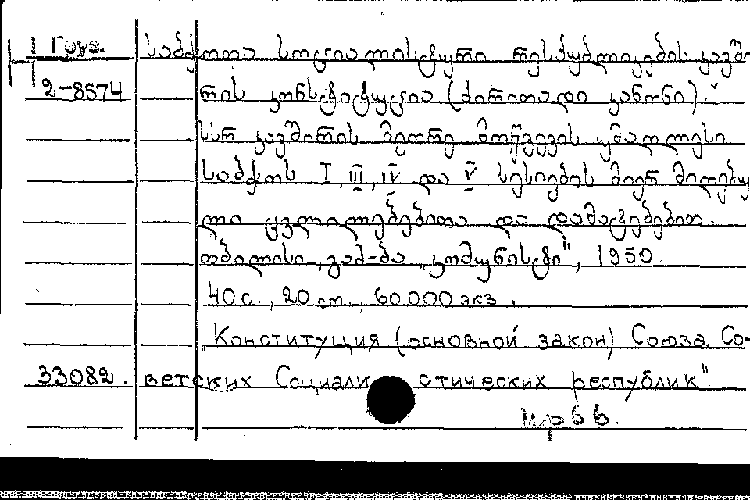 Груз. საბჭოთა სოციალისტური რესპუბლიკების კავში-
2-8574 რის კონსტიტუცია (ძირითადი კანონი).
სსრ კავშირის მეორე მოწვევის უმაღლესი
საბჭოს I, III, IV და V სესიების მიერ მიღებუ-
ლი ცვლილებებითა და დამატებებით.
თბილისი, გამ-ბა „კომუნისტი", 1950.
40 с., 20 см., 60000 экз.
"Конституция (основной закон) Союза Со-
33082. ветских Социалистических республик"